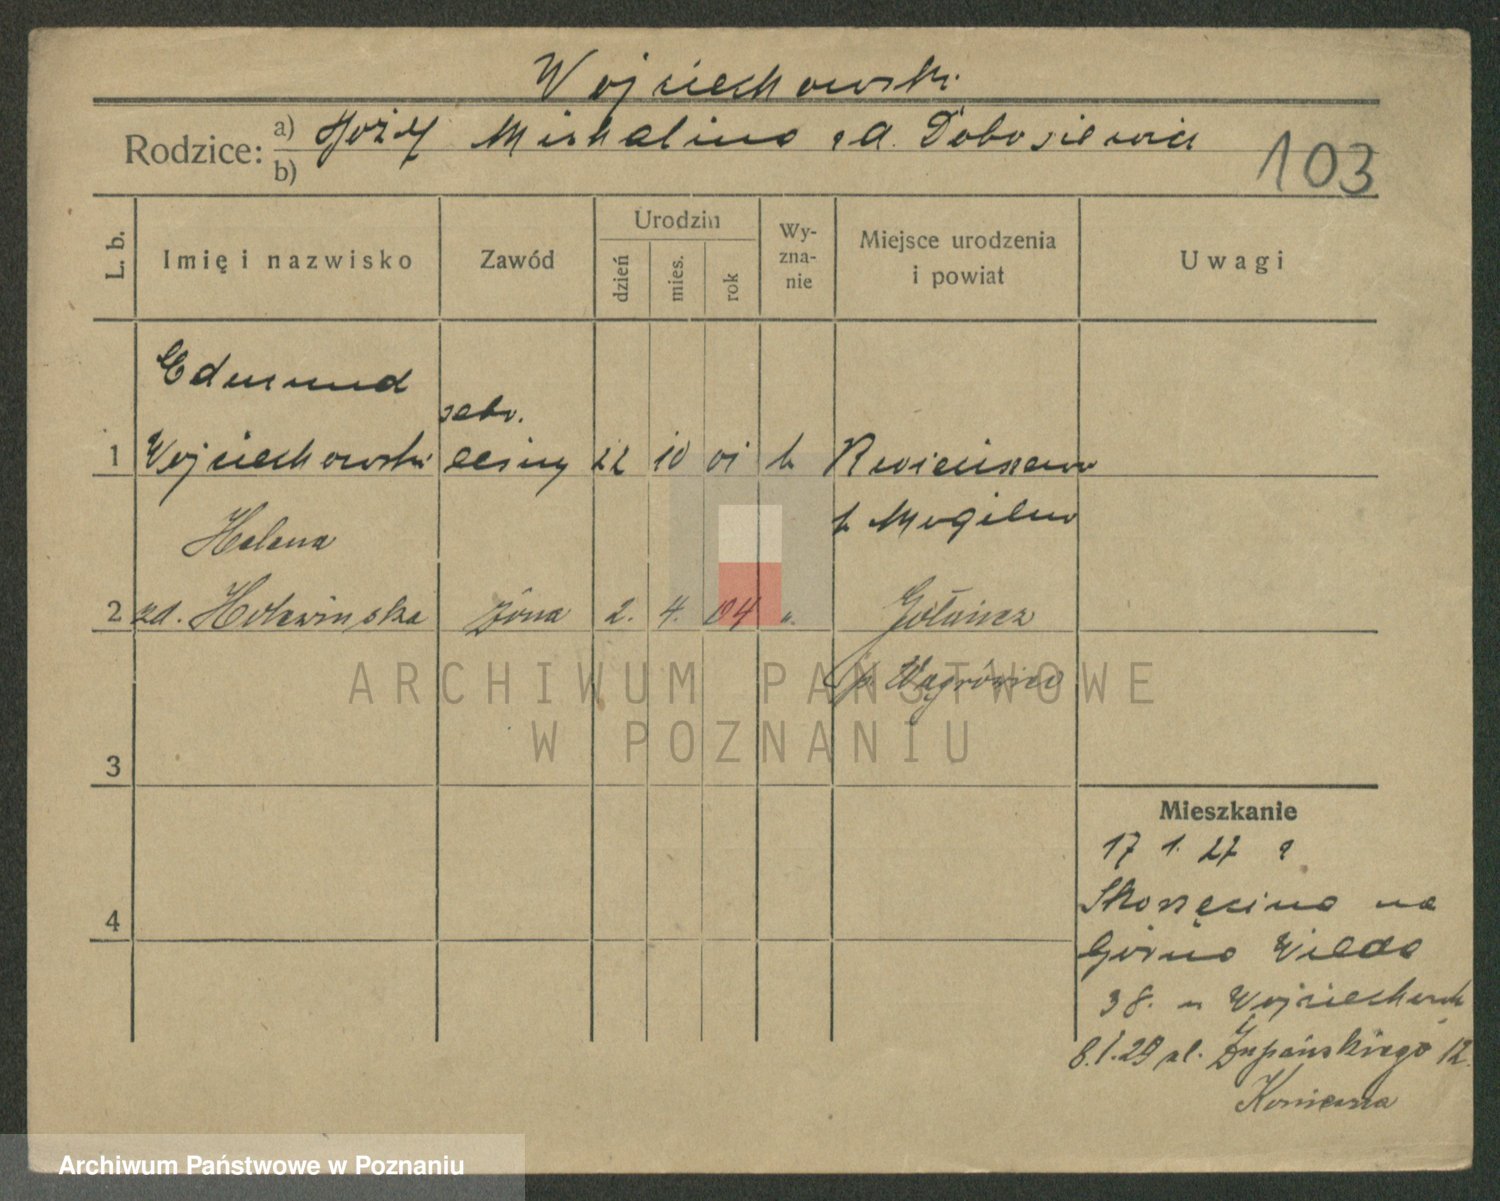 Wojciechowski
Rodzice: a) Józef Michalina zd. Dobosiewicz
b)
103
L. b. Imię i nazwisko Zawód Urodzin dzień mies. rok Wyznanie Miejsce urodzenia i powiat Uwagi
Edmund
1 Wojciechowski 22 10 01 k
p. Mogilno
Helena
2 zd. Holewinska żona 2. 4. 04 ". Gołańcz
p. Wągrówiec
3
4
Mieszkanie
17 1. 27 z
Skorzęcina na
Górna Wilda
38. u Wojciechowsk
8.1.29 ul. Żupańskiego 12.
ARCHIWUM PAŃSTWOWE
W POZNANIU
Archiwum Państwowe w Poznaniu